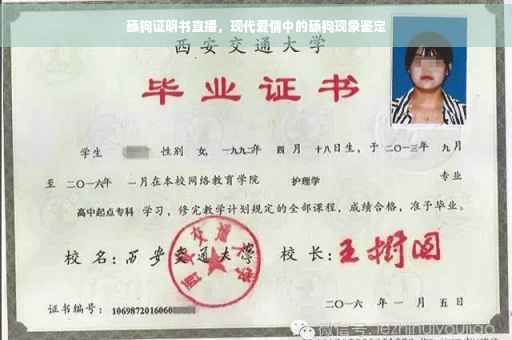 舔狗证明书直播，现代爱情中的舔狗现象鉴定
西安交通大学
毕业证书
学生 性别 女, 一九九二年 四 月 十八日生, 于 二〇一三年 九月
至 二〇一六年 一月在本校网络教育学院 护理学 专业
高中起点专科 学习, 修完教学计划规定的全部课程, 成绩合格, 准予毕业。
校 名: 西安交通大学 校 长: 王树国
西安交通大学
证书编号: 1069872016060
二〇一六 年 一 月 五 日
微信号: jezhihuiyoujiao